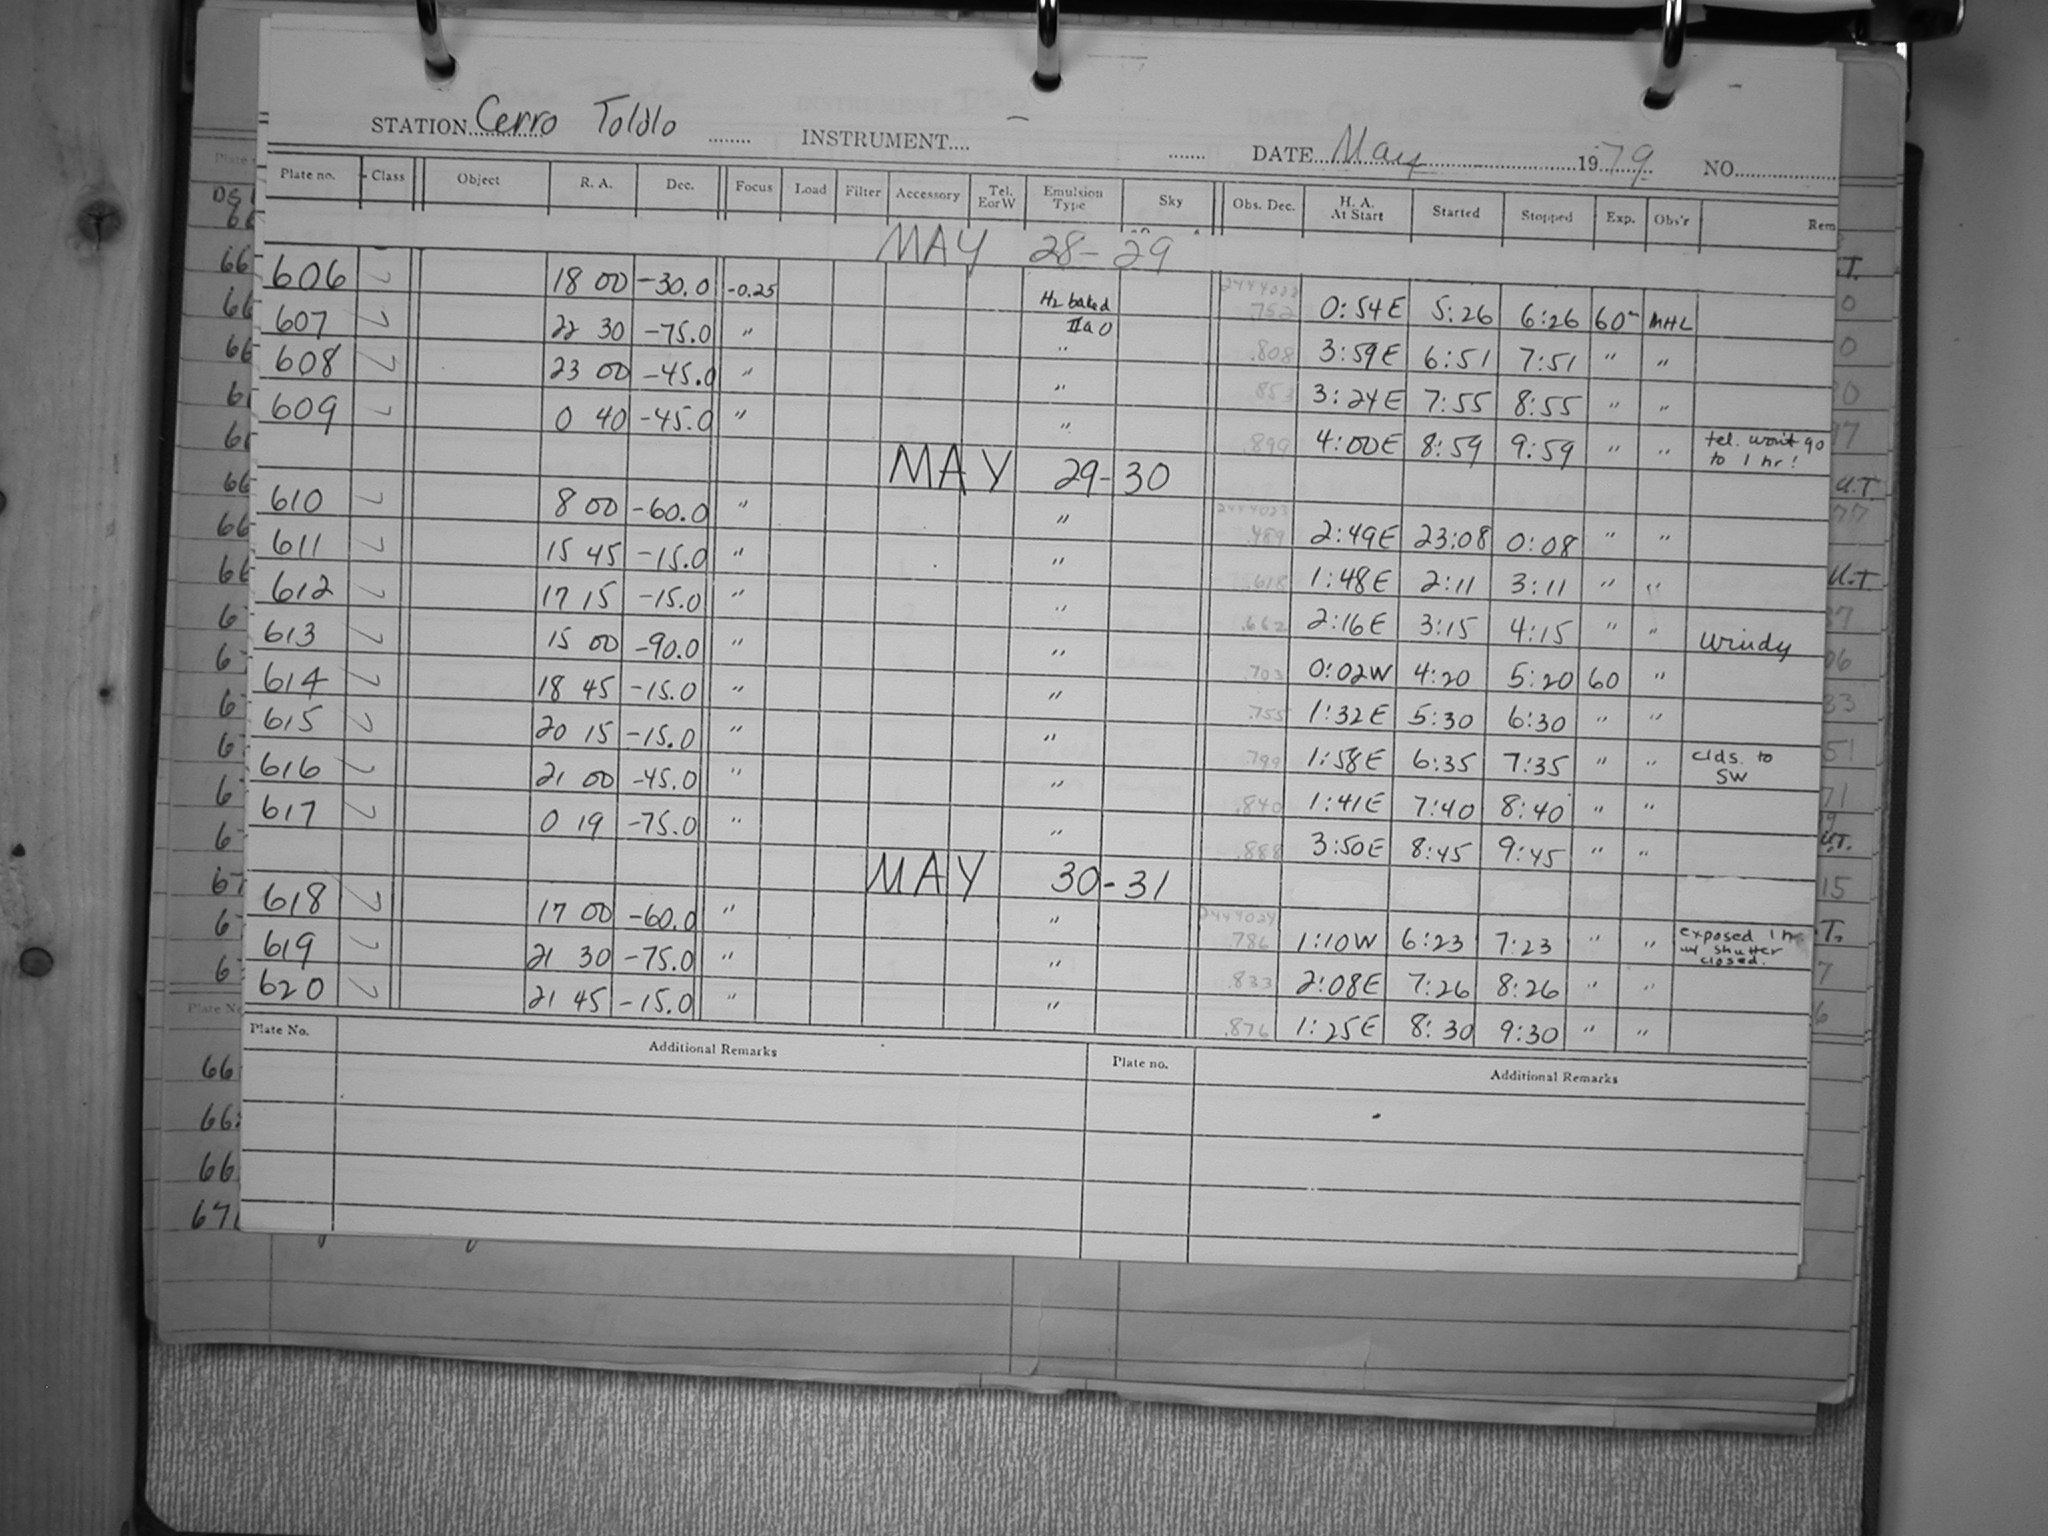 STATION Cerro Tololo INSTRUMENT.... DATE May 1979 NO.
Plate no. Class Object R. A. Dec. Focus Load Filter Accessory Tel. E or W Emulsion Type Sky Obs. Dec. H. A. At Start Started Stopped Exp. Obs'r Rem
MAY 28-29
606 7 18 00 -30.0 -0.25 H2 baked IIaO .752 0:54E 5:26 6:26 60m MHL
607 7 22 30 -75.0 " " .808 3:59E 6:51 7:51 " "
608 7 23 00 -45.0 " " .853 3:24E 7:55 8:55 " "
609 7 0 40 -45.0 " " .899 4:00E 8:59 9:59 " " tel. won't go to 1 hr!
MAY 29-30
610 7 8 00 -60.0 " " 2444023 .489 2:49E 23:08 0:08 " "
611 7 15 45 -15.0 " " .618 1:48E 2:11 3:11 " "
612 7 17 15 -15.0 " " .662 2:16E 3:15 4:15 " " windy
613 7 15 00 -90.0 " " .703 0:02W 4:20 5:20 60 "
614 7 18 45 -15.0 " " .755 1:32E 5:30 6:30 " "
615 7 20 15 -15.0 " " .799 1:58E 6:35 7:35 " " clds. to SW
616 7 21 00 -45.0 " " .840 1:41E 7:40 8:40 " "
617 7 0 19 -75.0 " " .888 3:50E 8:45 9:45 " "
MAY 30-31
618 7 17 00 -60.0 " " 2444024 .786 1:10W 6:23 7:23 " " exposed 1 hr w/ shutter closed.
619 7 21 30 -75.0 " " .833 2:08E 7:26 8:26 " "
620 7 21 45 -15.0 " " .876 1:25E 8:30 9:30 " "
Plate No. Additional Remarks Plate no. Additional Remarks